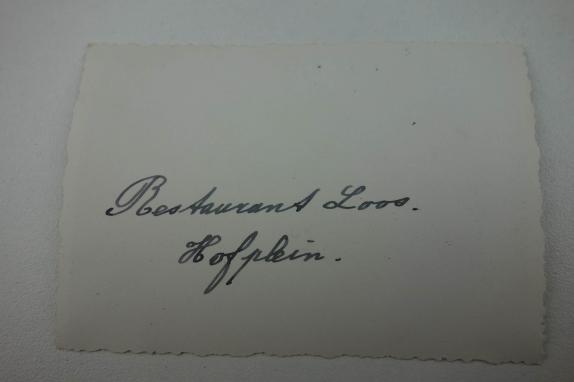 Restaurant Loos.
Hofplein.